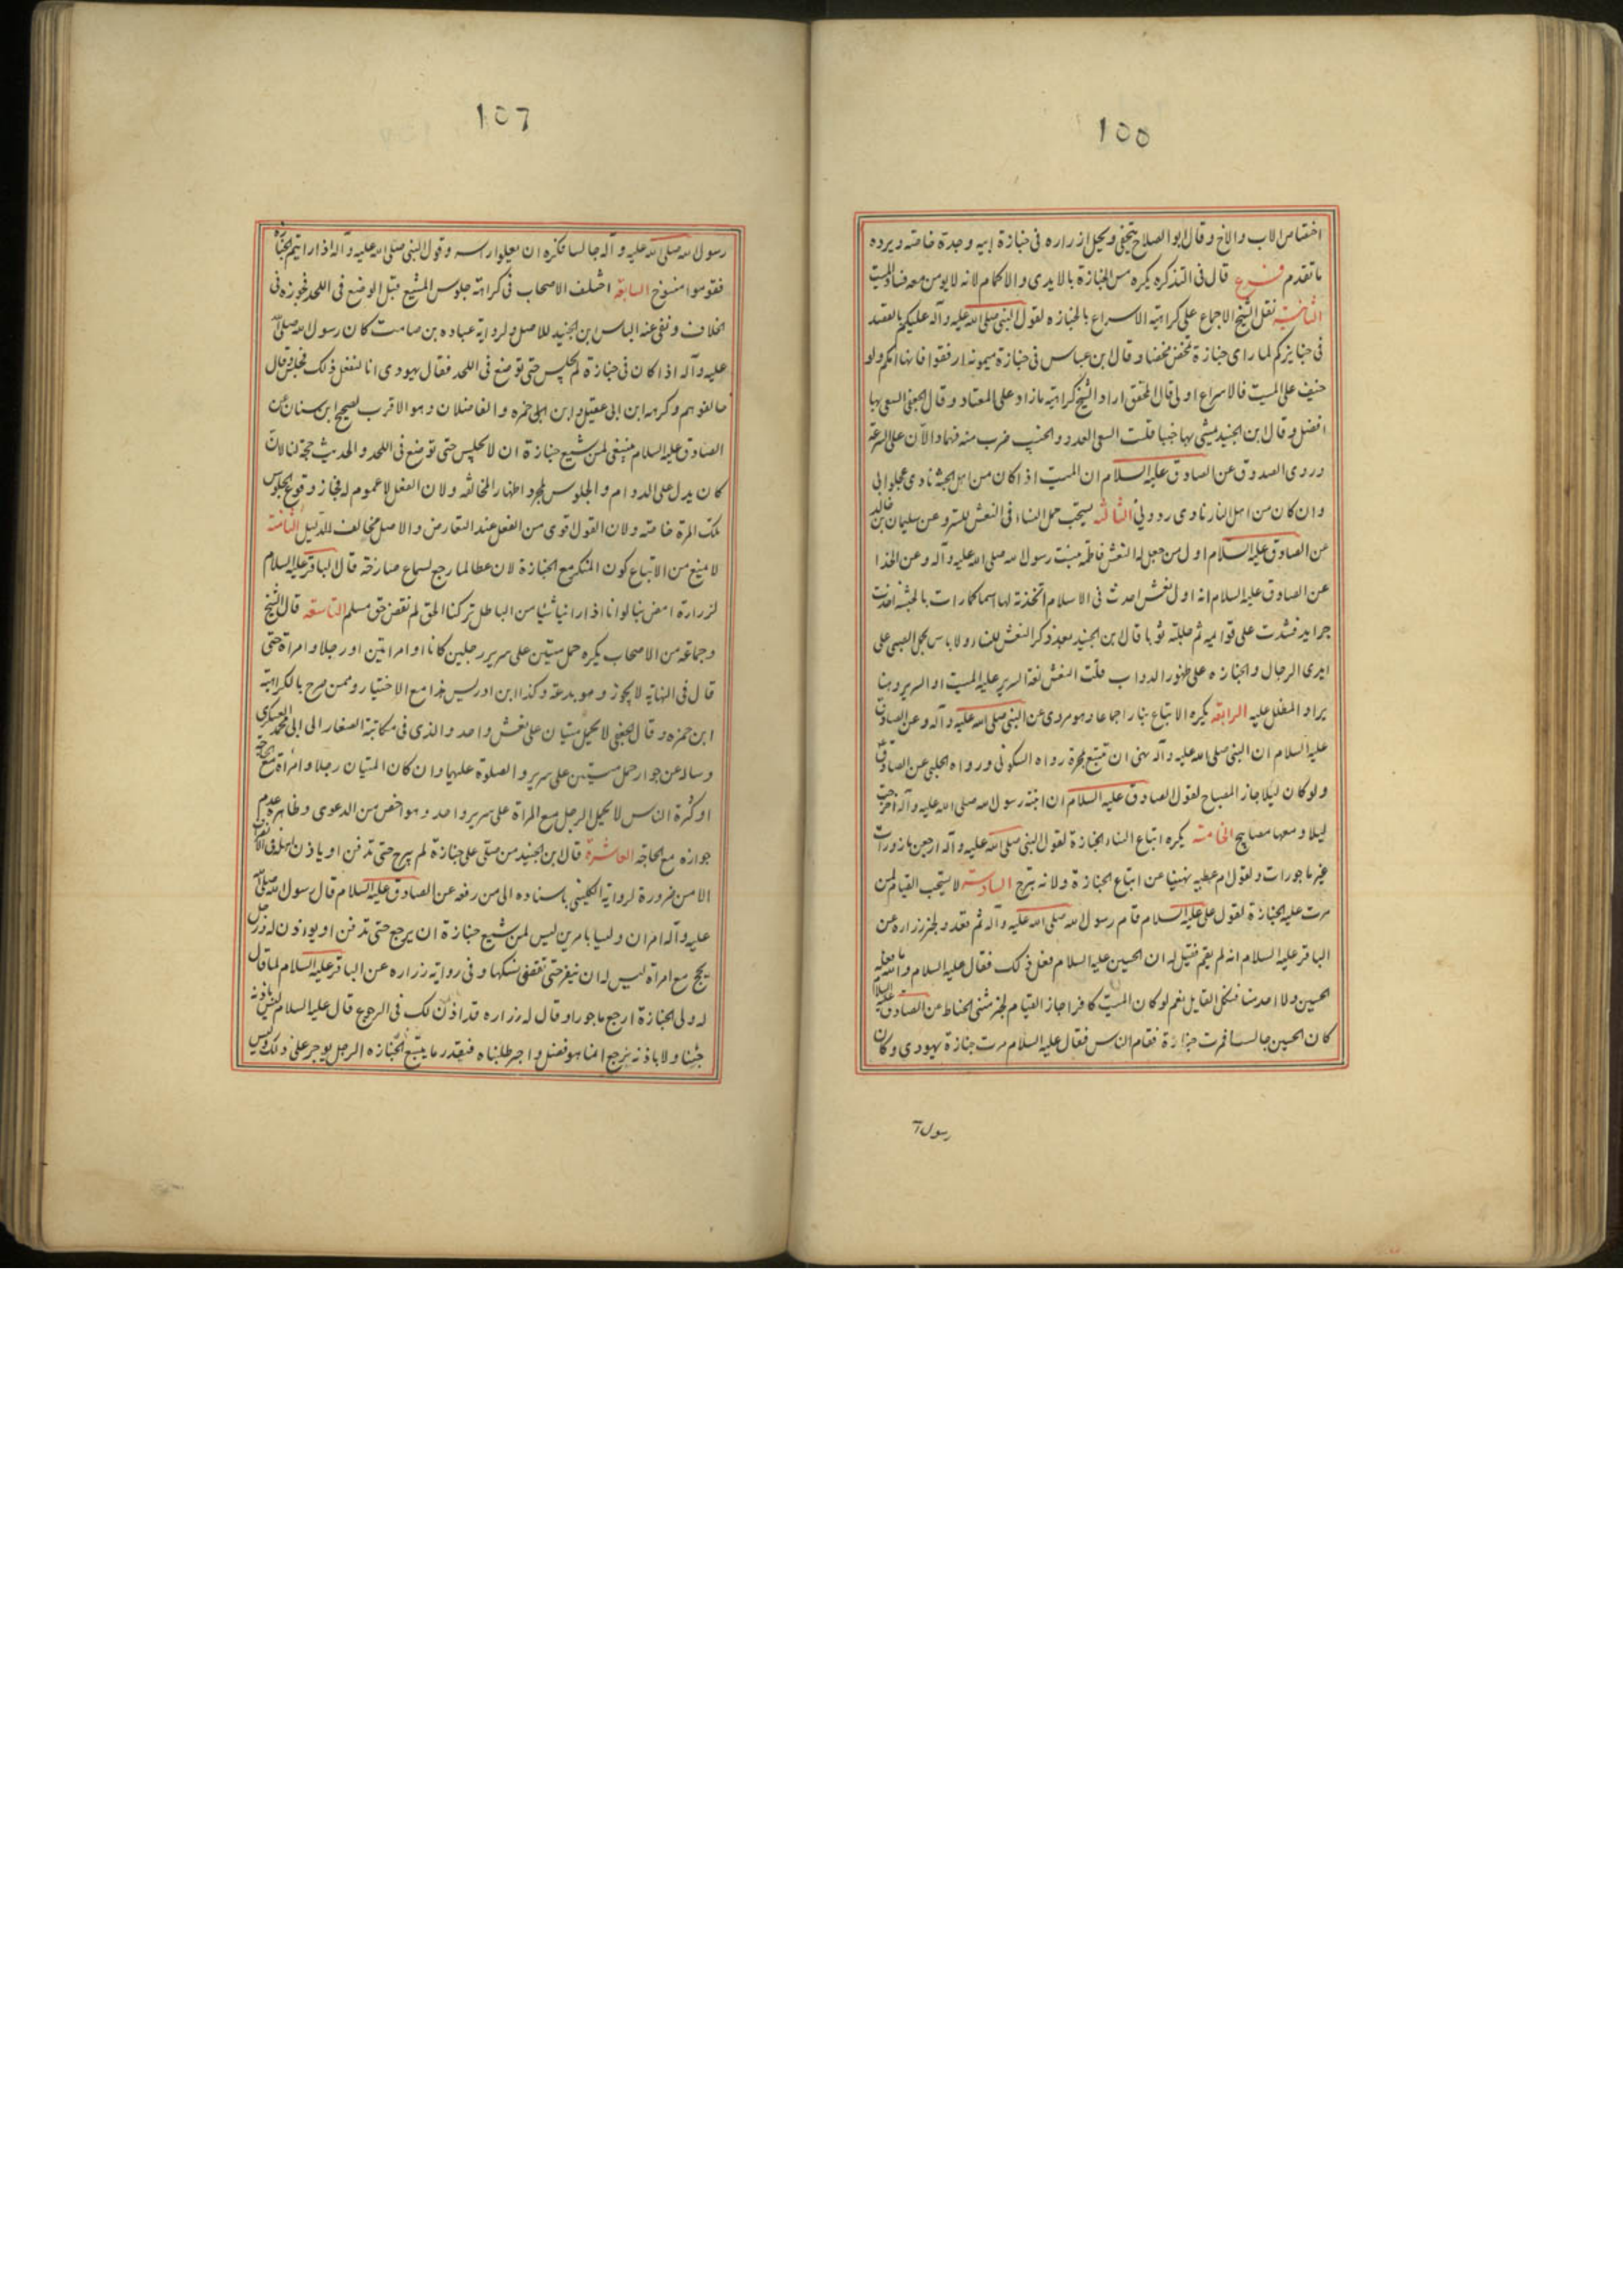 ١٥٥
اختصاص الاب والاخ وقال ابو الصلاح يتحفى ويحل ازراره فى جنازة ابيه وجده خاصته ويرده
ما تقدم فرع قال فى التذكره يكره مس الجنازة بالايدى والاكمام لانه لا يومن معه فساد الميت
الثانية نقل الشيخ الاجماع على كراهته الاسراع بالجنازه لقول النبى صلى الله عليه وآله عليكم بالقصد
فى جنايزكم لما راى جنازة تمخض مخضا وقال ابن عباس فى جنازة ميمونه ارفقوا فانها امكم ولو
خيف على الميت فالاسراع اولى قال المحقق اراد الشيخ كراهته مازاد على المعتاد وقال الجعفى السعى بها
افضل وقال ابن الجنيد يمشى بها خببا قلت السعى العدو والخبب ضرب منه فهما دالان على السرعة
وروى الصدوق عن الصادق عليه السلام ان الميت اذا كان من اهل الجنة نادى عجلوا بى
وان كان من اهل النار نادى ردونى الثالثه يستحب حمل النساء فى النعش للستر وعن سليمان بن خالد
عن الصادق عليه السلام اول من جعل له النعش فاطمه بنت رسول الله صلى الله عليه وآله وعن الحذا
عن الصادق عليه السلام انه اول نعش احدث فى الاسلام اتخذته لها اسما كما رات بالحبشه اخذت
جرايد فشدت على قوايمه ثم جللته ثوبا قال ابن الجنيد بعد ذكر النعش للنساء ولا باس بحمل الصبى على
ايدى الرجال والجنازه على ظهور الدواب قلت النعش لغة السرير عليه الميت او السرير وهنا
يراد المظلل عليه الرابعه يكره الاتباع بنار اجماعا وهو مروى عن النبى صلى الله عليه وآله وعن الصادق
عليه السلام ان النبى صلى الله عليه وآله نهى ان تتبع بمجمرة رواه السكونى ورواه الحلبى عن الصادق
ولو كان ليلا جاز المصباح لقول الصادق عليه السلام ان ابنة رسول الله صلى الله عليه وآله اخرجت
ليلا ومعها مصابيح الخامسه يكره اتباع النساء الجنازة لقول النبى صلى الله عليه وآله ارجعن مازورات
غير ماجورات ولقول ام عطيه نهينا عن اتباع الجنازة ولانه تبرج السادسه لا يستحب القيام لمن
مرت عليه الجنازة لقول على عليه السلام قام رسول الله صلى الله عليه وآله ثم قعد ولخبر زراره عن
الباقر عليه السلام انه لم يقم فقيل له ان الحسين عليه السلام فعل ذلك فقال عليه السلام والله ما فعله
الحسين ولا احد منا فشكل القايل نعم لو كان الميت كافرا جاز القيام لخبر مثنى الحناط عن الصادق عليه السلام
كان الحسين جالسا فمرت جنازة فقام الناس فقال عليه السلام مرت جنازة يهودى وكان
رسول
١٥٦
رسول الله صلى الله عليه وآله جالسا فكره ان يعلو راسه وقول النبى صلى الله عليه وآله اذا رايتم الجنازه
فقوموا منسوخ السابعه اختلف الاصحاب فى كراهة جلوس المشيع قبل الوضع فى اللحد فجوزه فى
الخلاف ونفى عنه الباس ابن الجنيد للاصل ولرواية عباده بن صامت كان رسول الله صلى الله
عليه وآله اذا كان فى جنازة لم يجلس حتى توضع فى اللحد فقال يهودى انا لنفعل ذلك فجلس وقال
خالفوهم وكرهه ابن ابى عقيل وابن ابى حمزه والفاضلان وهو الاقرب لصحيح ابن سنان عن
الصادق عليه السلام ينبغى لمن شيع جنازة ان لا يجلس حتى توضع فى اللحد والحديث حجة لنا لان
كان يدل على الدوام والجلوس لمجرد اظهار المخالفه ولان الفعل لا عموم له فجاز وقوع الجلوس
تلك المرة خاصه ولان القول اقوى من الفعل عند التعارض والاصل مخالف للدليل الثامنه
لا يمنع من الاتباع كون المنكر مع الجنازة لان عطا لما رجع لسماع صارخه قال الباقر عليه السلام
لزرارة امض بنا لو انا اذا راينا شيئا من الباطل تركنا الحق لم نقض حق مسلم التاسعه قال الشيخ
وجماعة من الاصحاب يكره حمل ميتين على سرير رجلين كانا او امراتين او رجلا وامراة حتى
قال فى النهاية لا يجوز وهو بدعة وكذا ابن ادريس هذا مع الاختيار وممن صرح بالكراهة
ابن حمزه وقال الجعفى لا يحمل ميتان على نعش واحد والذى فى مكاتبة الصفار الى ابى محمد العسكرى
وساله عن جواز حمل ميتين على سرير والصلوة عليهما وان كان الميتان رجلا وامراة مع الحاجة
او كثرة الناس لا يحمل الرجل مع المراة على سرير واحد وهو اخص من الدعوى وظاهره عدم
جوازه مع الحاجة العاشرة قال ابن الجنيد من صلى على جنازة لم يبرح حتى تدفن او ياذن اهله فى الانصراف
الا من ضرورة لرواية الكلينى باسناده الى من رفعه عن الصادق عليه السلام قال رسول الله صلى الله
عليه وآله اميران وليسا باميرين ليس لمن شيع جنازة ان يرجع حتى تدفن او يوذن له ورجل
يحج مع امراة ليس له ان ينفر حتى تقضى نسكها وفى رواية زراره عن الباقر عليه السلام لما قال
له ولى الجنازة ارجع ماجورا وقال له زراره قد اذن لك فى الرجوع قال عليه السلام ليس باذنه
جئنا ولا باذنه نرجع انما هو فضل واجر طلبناه فبقدر ما يتبع الجنازه الرجل يوجر على ذلك وليس